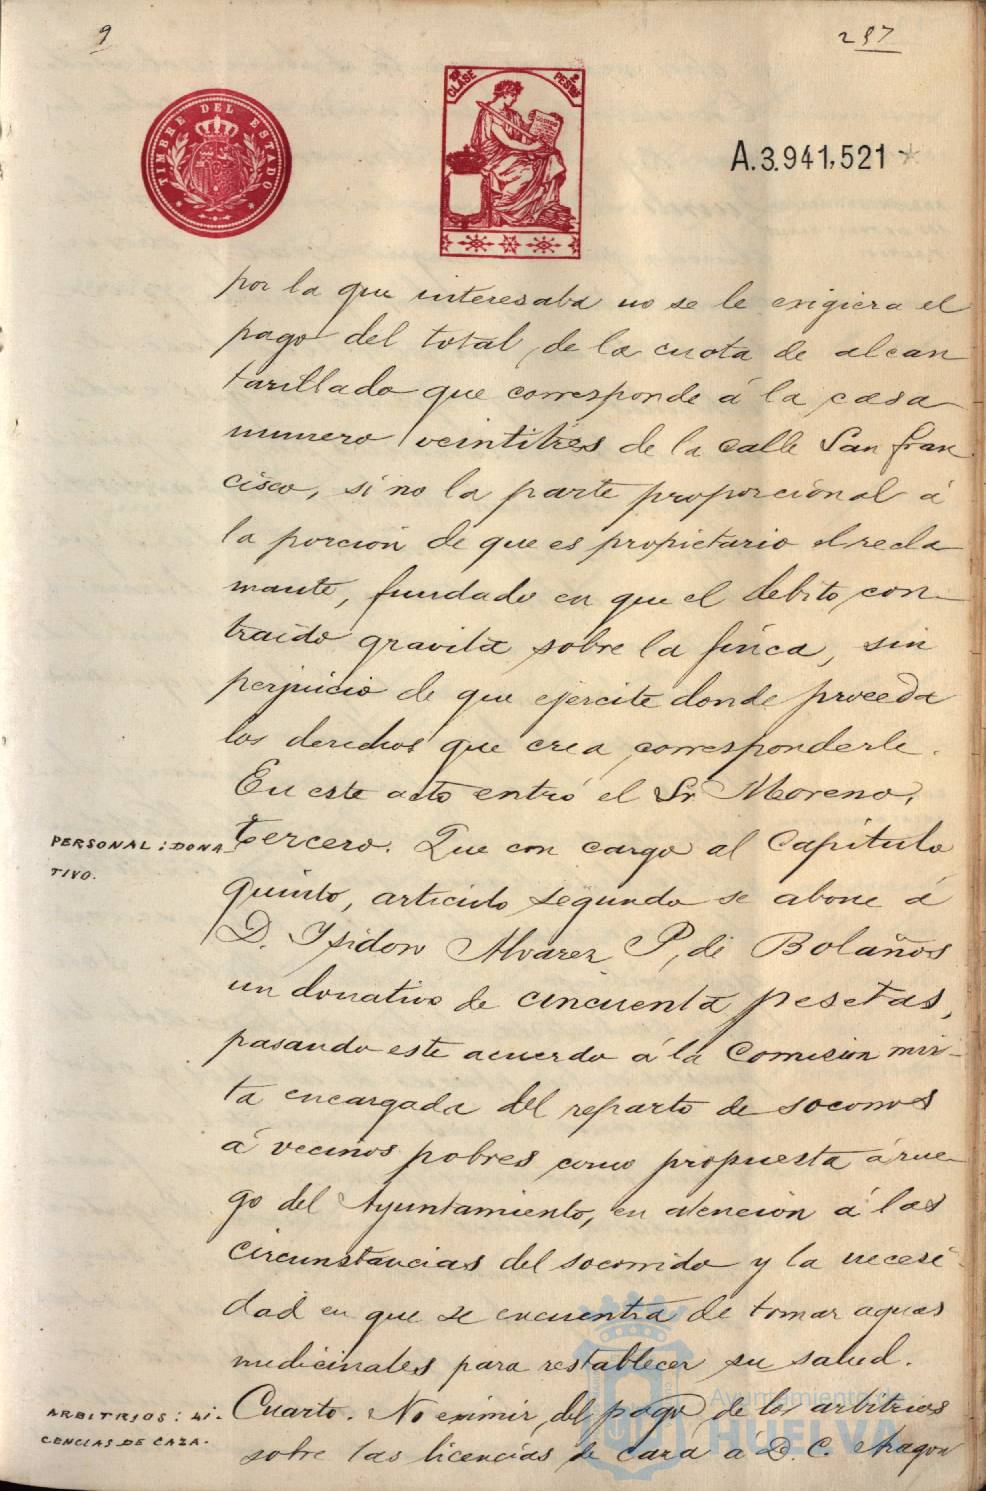 9
237
TIMBRE DEL ESTADO
CLASE
PESETAS
A.3.941,521 *
por la que interesaba no se le exigiera el
pago del total de la cuota de alcan
tarillado que corresponde á la casa
numero veintitres de la calle San Fran
cisco, sino la parte proporcional á
la porcion de que es propietario el recla
mante, fundado en que el debito con-
traido gravita sobre la finca, sin
perjuicio de que ejercite donde proceda
los derechos que crea corresponderle.
En este acto entró el Sr. Moreno.
PERSONAL: DONA
TIVO.
Tercero. Que con cargo al Capítulo
quinto, articulo segundo se abone á
D. Ysidoro Alvarez P. de Bolaños
un donativo de cincuenta pesetas,
pasando este acuerdo á la Comision mix-
ta encargada del reparto de socorros
á vecinos pobres como propuesta á rue-
go del Ayuntamiento, en atencion á las
circunstancias del socorrido y la necesi-
dad en que se encuentra de tomar aguas
medicinales para restablecer su salud.
ARBITRIOS: LI-
CENCIAS DE CAZA.
Cuarto. No eximir del pago de los arbitrios
sobre las licencias de caza a D. C. Aragon
Ayuntamiento de
HUELVA